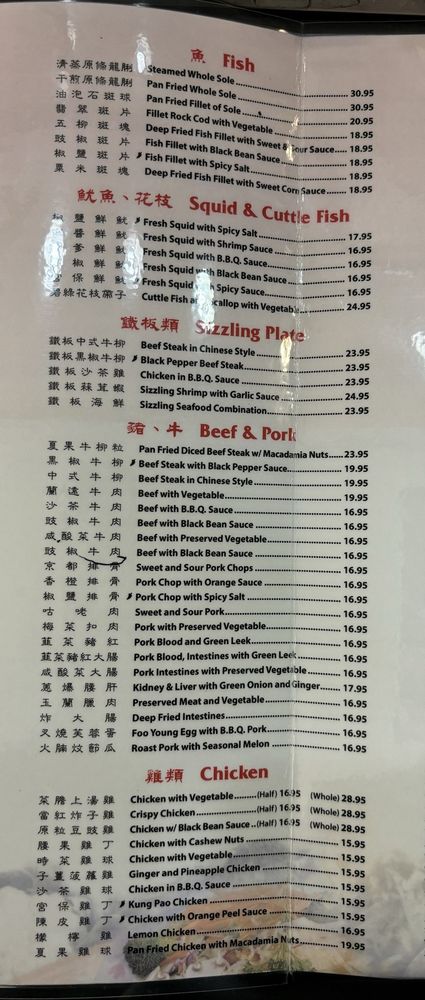 魚 Fish
清蒸原條龍脷 Steamed Whole Sole 30.95
干煎原條龍脷 Pan Fried Whole Sole 30.95
油泡石斑球 Pan Fried Fillet of Sole 20.95
翡翠斑片 Fillet Rock Cod with Vegetable 18.95
五柳斑塊 Deep Fried Fish Fillet with Sweet & Sour Sauce 18.95
豉椒斑片 Fish Fillet with Black Bean Sauce 18.95
椒鹽斑片 Fish Fillet with Spicy Salt 18.95
粟米斑塊 Deep Fried Fish Fillet with Sweet Corn Sauce 18.95
魷魚、花枝 Squid & Cuttle Fish
椒鹽鮮魷 Fresh Squid with Spicy Salt 17.95
醬鮮魷 Fresh Squid with Shrimp Sauce 16.95
爹鮮魷 Fresh Squid with B.B.Q. Sauce 16.95
椒鮮魷 Fresh Squid with Black Bean Sauce 16.95
宮保鮮魷 Fresh Squid with Spicy Sauce 16.95
碧綠花枝帶子 Cuttle Fish and Scallop with Vegetable 24.95
鐵板類 Sizzling Plate
鐵板中式牛柳 Beef Steak in Chinese Style 23.95
鐵板黑椒牛柳 Black Pepper Beef Steak 23.95
鐵板沙茶雞 Chicken in B.B.Q. Sauce 23.95
鐵板蒜茸蝦 Sizzling Shrimp with Garlic Sauce 24.95
鐵板海鮮 Sizzling Seafood Combination 23.95
豬、牛 Beef & Pork
夏果牛柳粒 Pan Fried Diced Beef Steak w/ Macadamia Nuts 23.95
黑椒牛柳 Beef Steak with Black Pepper Sauce 19.95
中式牛柳 Beef Steak in Chinese Style 19.95
蘭遠牛肉 Beef with Vegetable 16.95
沙茶牛肉 Beef with B.B.Q. Sauce 16.95
豉椒牛肉 Beef with Black Bean Sauce 16.95
咸酸菜牛肉 Beef with Preserved Vegetable 16.95
豉椒牛肉 Beef with Black Bean Sauce 16.95
京都排骨 Sweet and Sour Pork Chops 16.95
香橙排骨 Pork Chop with Orange Sauce 16.95
椒鹽排骨 Pork Chop with Spicy Salt 16.95
咕咾肉 Sweet and Sour Pork 16.95
梅菜扣肉 Pork with Preserved Vegetable 16.95
韮菜豬紅 Pork Blood and Green Leek 16.95
韮菜豬紅大腸 Pork Blood, Intestines with Green Leek 16.95
咸酸菜大腸 Pork Intestines with Preserved Vegetable 16.95
蔥爆腰肝 Kidney & Liver with Green Onion and Ginger 17.95
玉蘭臘肉 Preserved Meat and Vegetable 16.95
炸大腸 Deep Fried Intestines 16.95
叉燒芙蓉蛋 Foo Young Egg with B.B.Q. Pork 16.95
火腩炆節瓜 Roast Pork with Seasonal Melon 16.95
雞類 Chicken
菜膽上湯雞 Chicken with Vegetable (Half) 16.95 (Whole) 28.95
當紅炸子雞 Crispy Chicken (Half) 16.95 (Whole) 28.95
原粒豆豉雞 Chicken w/ Black Bean Sauce (Half) 16.95 (Whole) 28.95
腰果雞丁 Chicken with Cashew Nuts 15.95
時菜雞球 Chicken with Vegetable 15.95
子薑菠蘿雞 Ginger and Pineapple Chicken 15.95
沙茶雞球 Chicken in B.B.Q. Sauce 15.95
宮保雞丁 Kung Pao Chicken 15.95
陳皮雞丁 Chicken with Orange Peel Sauce 15.95
檬檸雞 Lemon Chicken 16.95
夏果雞球 Pan Fried Chicken with Macadamia Nuts 19.95